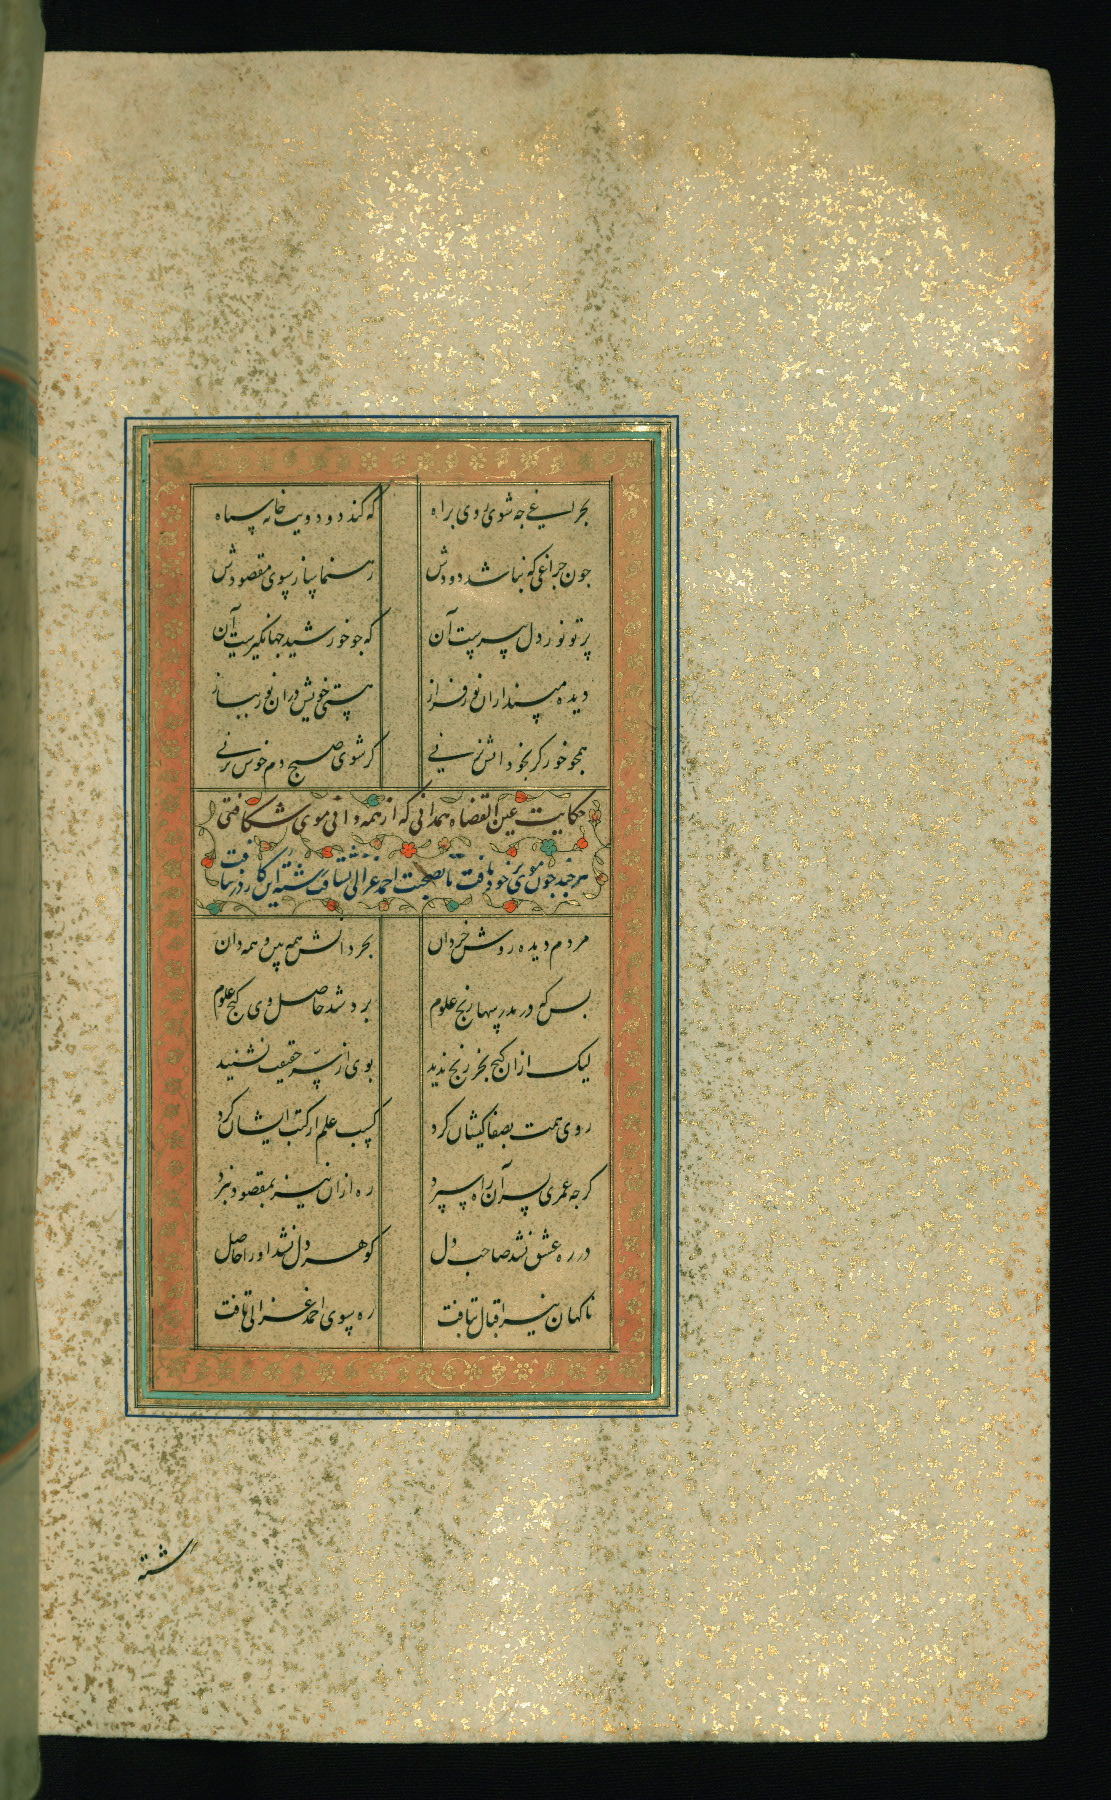 بجراغی چه شوی روی براه که کند دود ویت خانه سیاه
چون چراغی که نباشد دودش رهنما ساز بسوی مقصودش
پرتو نور دل پیرست آن که چو خورشید جهانگیرست آن
دیده میند ازان نور فراز هستی خویش دران نور بباز
همچو خور گر بخود آتش نزنی کر شوی صبح دم خوش نزنی
حکایت عین القضاة همدانی که از همه دانی موی شکافتی
هر چند چون موی بر خود تافت تا بصحبت احمد غزالی نشتافت رشته این کار در نیافت
مردم دیده روشن خردان بحر دانش همه بین و همه دان
بس که در مدرسها رنج علوم برد شد حاصل وی گنج علوم
لیک ازان گنج بجز رنج ندید بوی از سر حقیقت نشنید
روی همت بصفا کیشان کرد کسب علم از کتب ایشان کرد
گرچه عمری بسر آن راه سپرد ره ازان نیز بمقصود نبرد
در ره عشق نشد صاحب دل گوهر دل نشد او را حاصل
ناگهان نیر اقبال بتافت ره بسوی احمد غزالی یافت
رشته